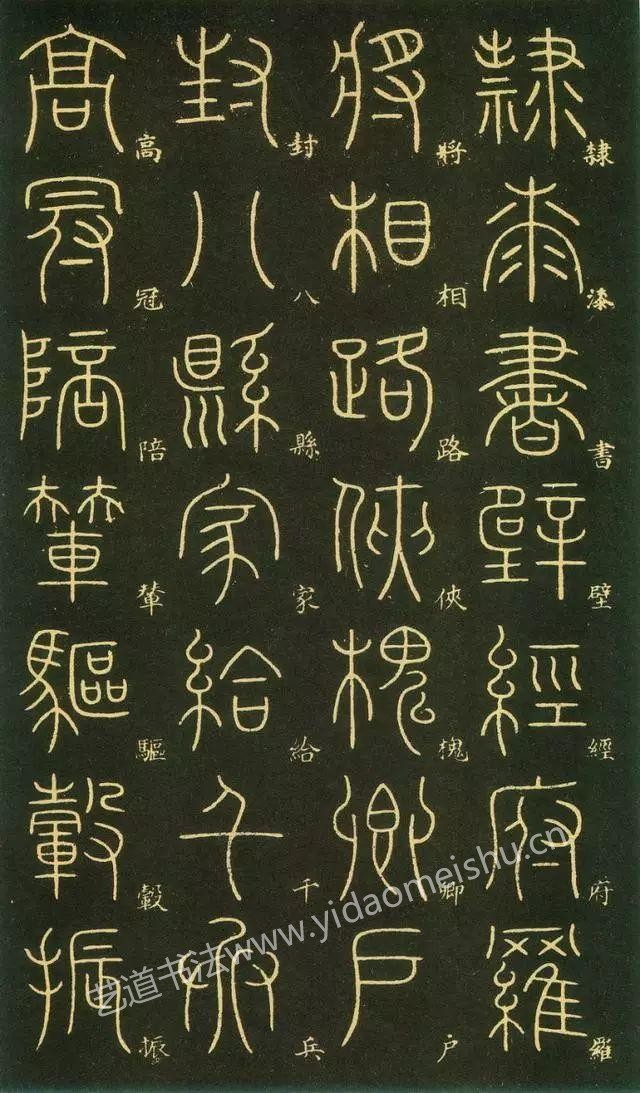 隸漆書壁經府羅
將相路俠槐卿戶
封八縣家給千兵
高冠陪輦驅轂振
艺道书法www.yidaomeishu.cn